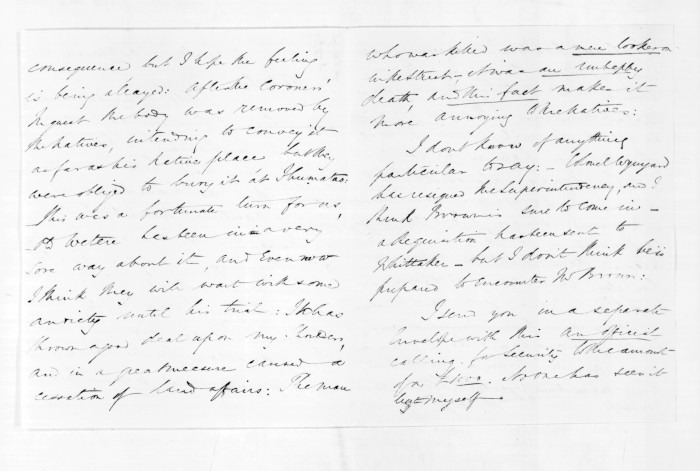 consequence but I hope the feeling
is being allayed: after the Coroners'
Inquest the body was removed by
the natives, intending to convey it
as far as his native place but they
were obliged to bury it at Ihumatao:
This was a fortunate turn for us,
Wetere has been in a very
sore way about it, and even now
I think they will wait with some
anxiety until his trial: It has
thrown a good deal upon my shoulders,
and in a great measure caused a
cessation of land affairs: The man
who was killed was a mere looker on
in the street - it was an unhappy
death, and this fact makes it
more annoying to the natives:
I dont know of anything
particular to say: - Colonel Wynyard
has resigned the Superintendency, and I
think Brown is sure to come in -
a Requisition has been sent to
Whittaker - but I don't think he is
prepared to encounter Mr Brown:
I send you in a separate
Envelope with this an official
calling for Security to the amount
of . No one has seen it
but myself -